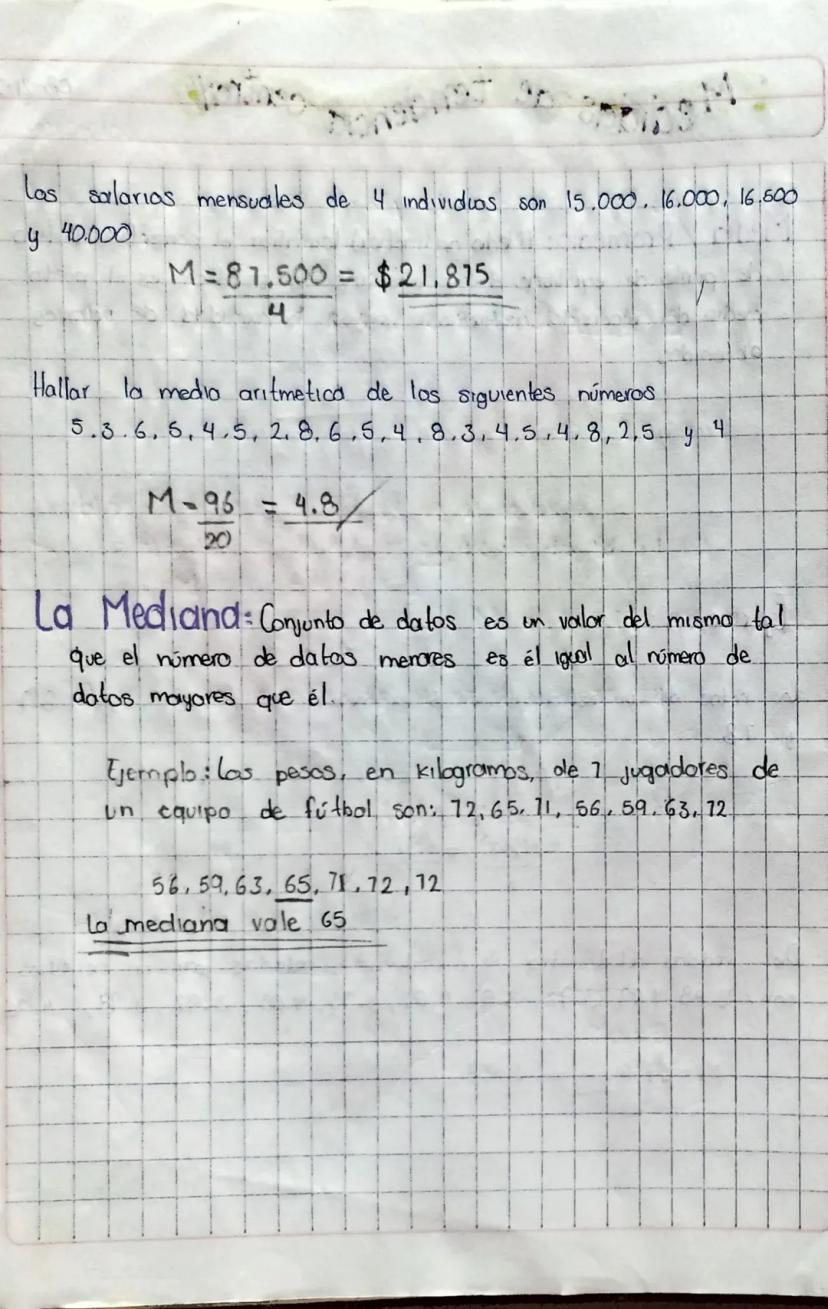 Los salarios mensuales de 4 individuos son 15.000, 16.000, 16.500
y 40.000
M = 87.500 = $21,875
4
Hallar la media aritmetica de los siguientes números
5.3.6,5,4.5,2,8,6,5,4,8.3,4.5,4,8,2,5 y 4
M = 96 = 4.8
20
La Mediana: Conjunto de datos es un valor del mismo tal
que el número de datos menores es él igual al número de
datos mayores que él.
Ejemplo: Los pesos, en kilogramos, de 7 jugadores de
un equipo de fútbol son: 72, 65, 71, 56, 59, 63, 72
56, 59, 63, 65, 71, 72, 72
la mediana vale 65